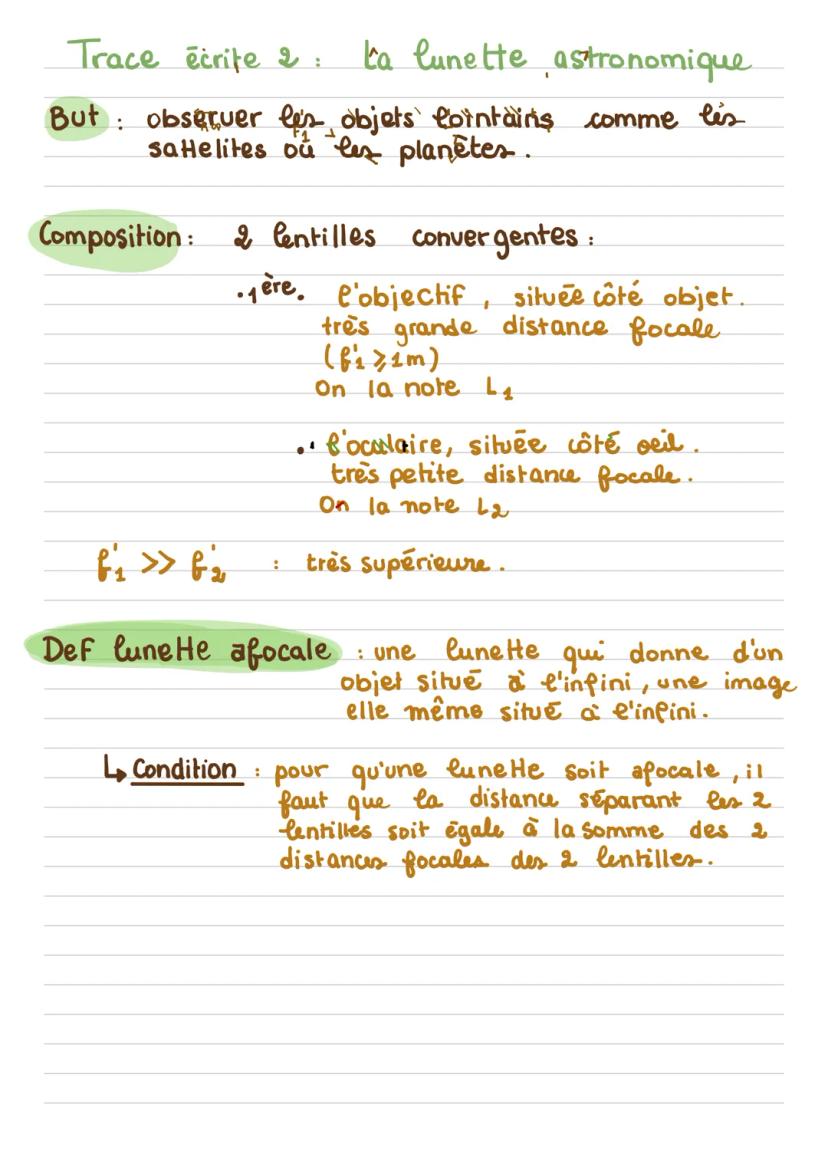 Trace écrite 2 : La lunette astronomique
But : observer les objets lointains comme les
sattelites où les planètes.
Composition : 2 lentilles convergentes :
• 1ère. l'objectif, située côté objet.
très grande distance focale
(f'1 ⩾ 1m)
On la note L1
• l'oculaire, située côté oeil.
très petite distance focale.
On la note L2
f'1 >> f'2 : très supérieure.
Def lunette afocale : une lunette qui donne d'un
objet situé à l'infini, une image
elle même situé à l'infini.
↳ Condition : pour qu'une lunette soit afocale, il
faut que la distance séparant les 2
lentilles soit égale à la somme des 2
distances focales des 2 lentilles.